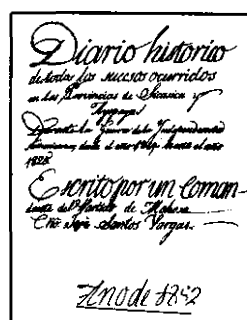 Diario historico
de todos los sucesos ocurridos
en las Provincias de Sicasica y
Ayopaya
Durante la Guerra de la Independencia
Americana, desde el año 1814 hasta el año
1825
Escrito por un Coman-
dante del Partido de Mohosa
Cno José Santos Vargas
Año de 1852